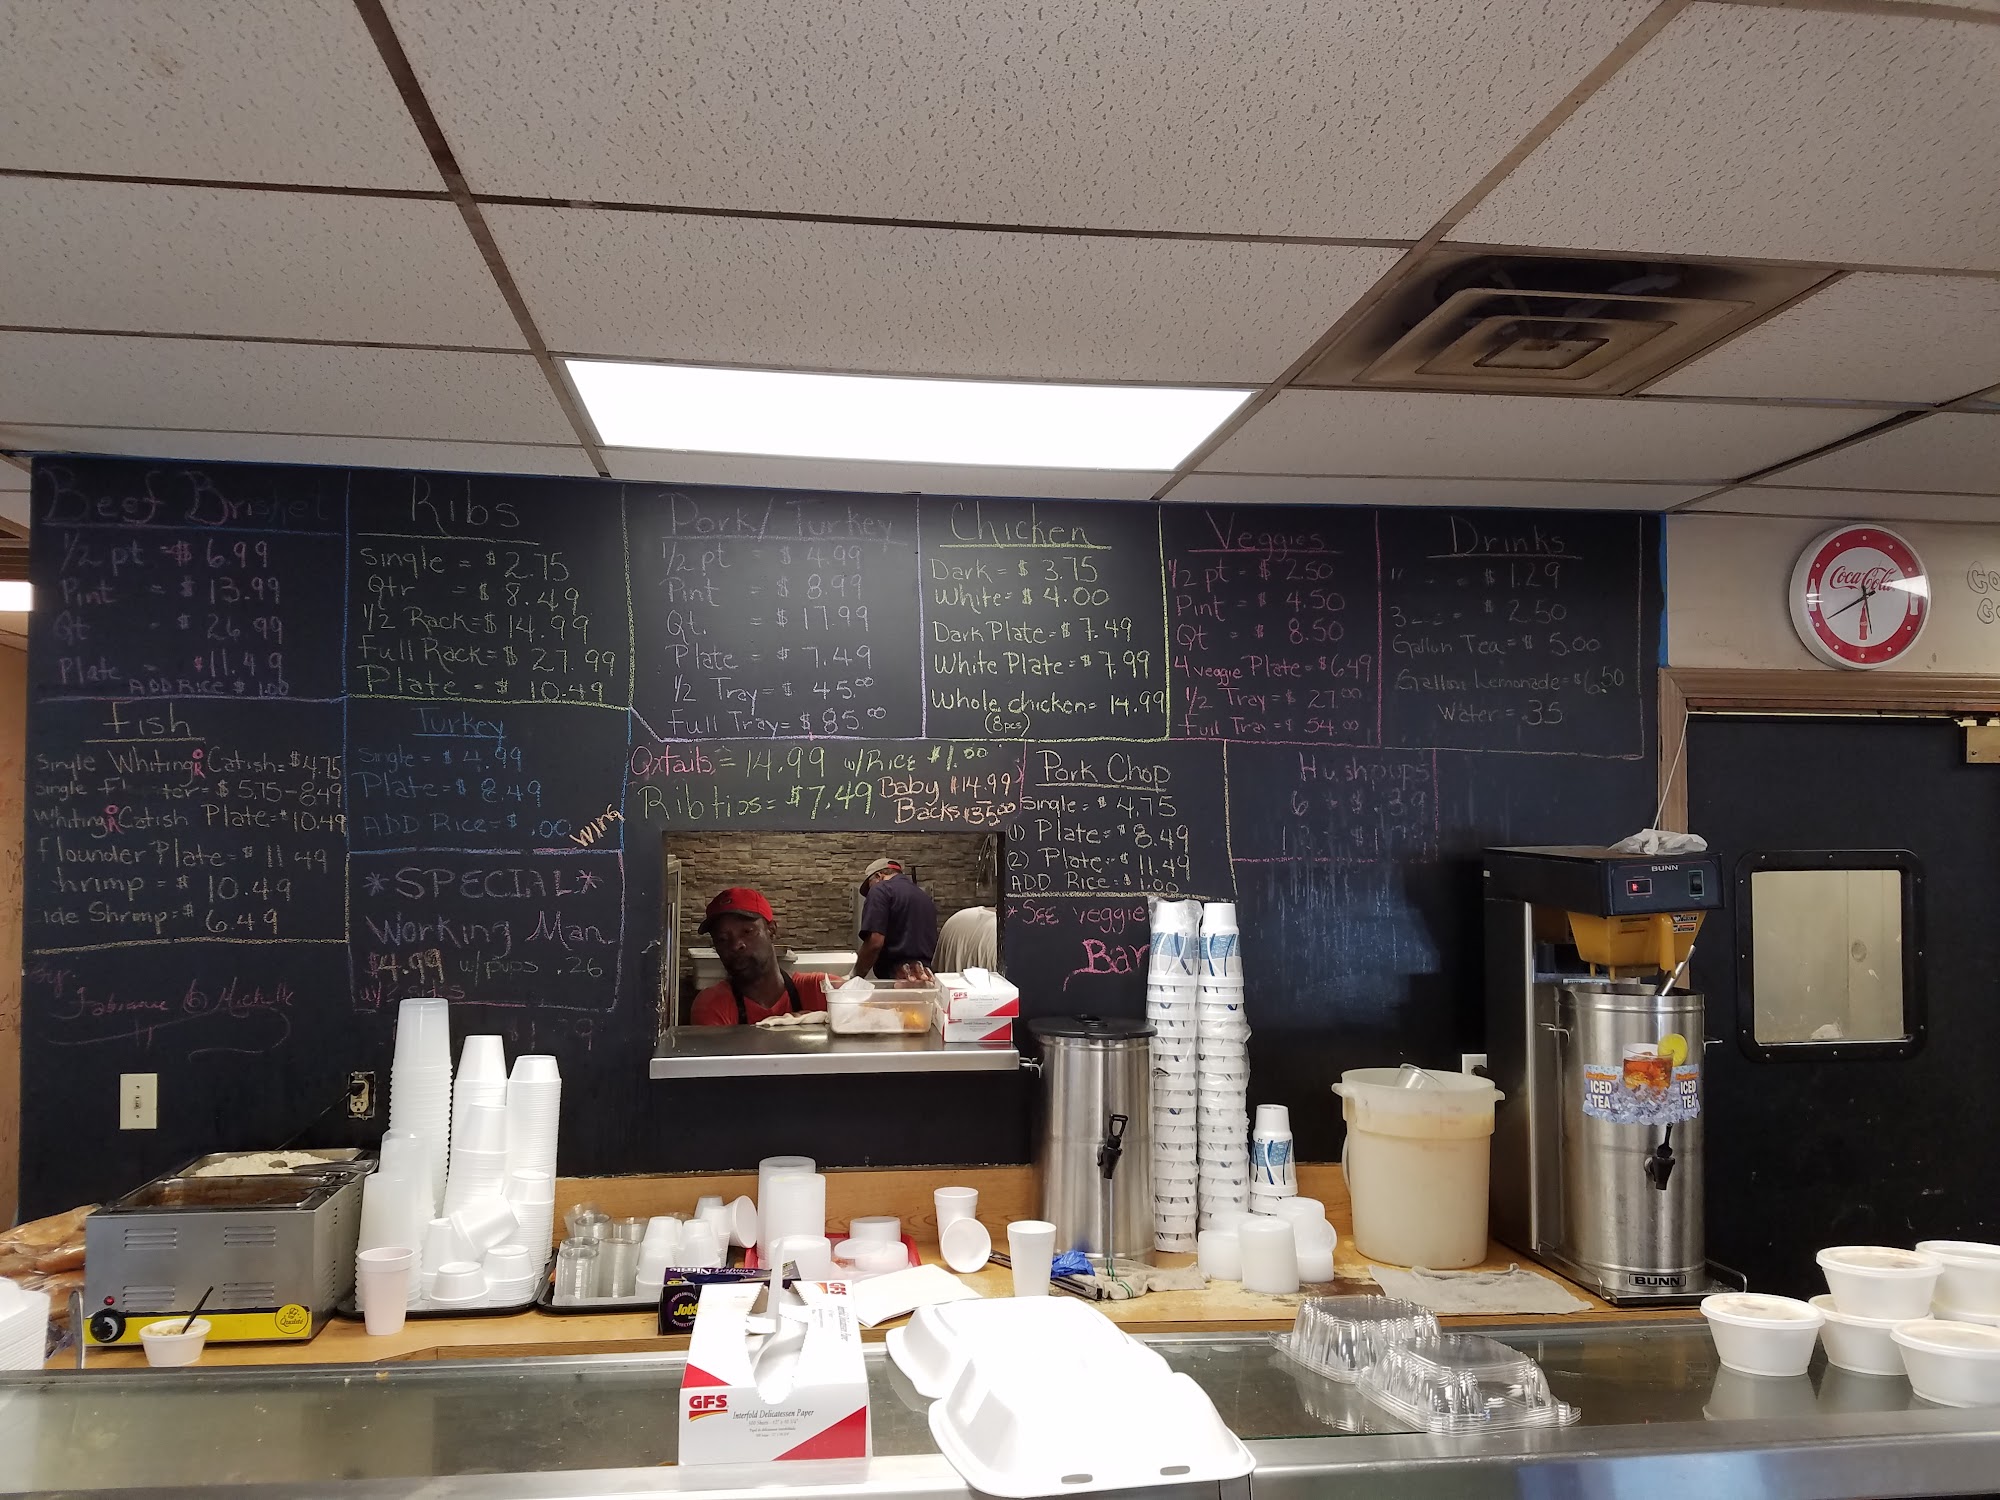 Beef Brisket
1/2 pt = $ 6.99
Pint = $ 13.99
Qt = $ 26.99
Plate = $11.49
ADD RICE $ 1.00
Ribs
Single = $ 2.75
Qtr = $ 8.49
1/2 Rack = $ 14.99
Full Rack = $ 27.99
Plate = $ 10.49
Pork/Turkey
1/2 pt = $ 4.99
Pint = $ 8.99
Qt. = $ 17.99
Plate = $ 7.49
1/2 Tray = $ 45.00
Full Tray = $ 85.00
Chicken
Dark = $ 3.75
White = $ 4.00
Dark Plate = $ 7.49
White Plate = $ 7.99
Whole chicken = 14.99
(8pcs)
Veggies
1/2 pt = $ 2.50
Pint = $ 4.50
Qt = $ 8.50
4 veggie Plate = $6.49
1/2 Tray = $ 27.00
Full Tra = $ 54.00
Drinks
= $ 1.29
3 = $ 2.50
Gallon Tea = $ 5.00
Gallon Lemonade = $6.50
Water = .35
Fish
Single Whiting OR Catish = $4.75
Single = $ 5.75-8.49
Whiting OR Catish Plate = $10.49
flounder Plate = $ 11.49
hrimp = $ 10.49
ide Shrimp = $ 6.49
By:
Fabienne & Michelle
Turkey
Single = $ 4.99
Plate = $ 8.49
ADD RICE = $ .00
Wing
*SPECIAL*
Working Man
$4.99 w/pups .26
w/2 sides
Oxtails = 14.99 w/Rice $1.50
Ribtips = $7.49
Baby $14.99
Backs
Pork Chop
Single = $ 4.75
(1) Plate = $ 8.49
(2) Plate = $ 11.49
ADD RICE = $ 1.00
*See veggie
Bar
Hushpups
6 $ .39
Coca-Cola
BUNN
ICED TEA
ICED TEA
BUNN
GFS
GFS
Interfold Delicatessen Paper